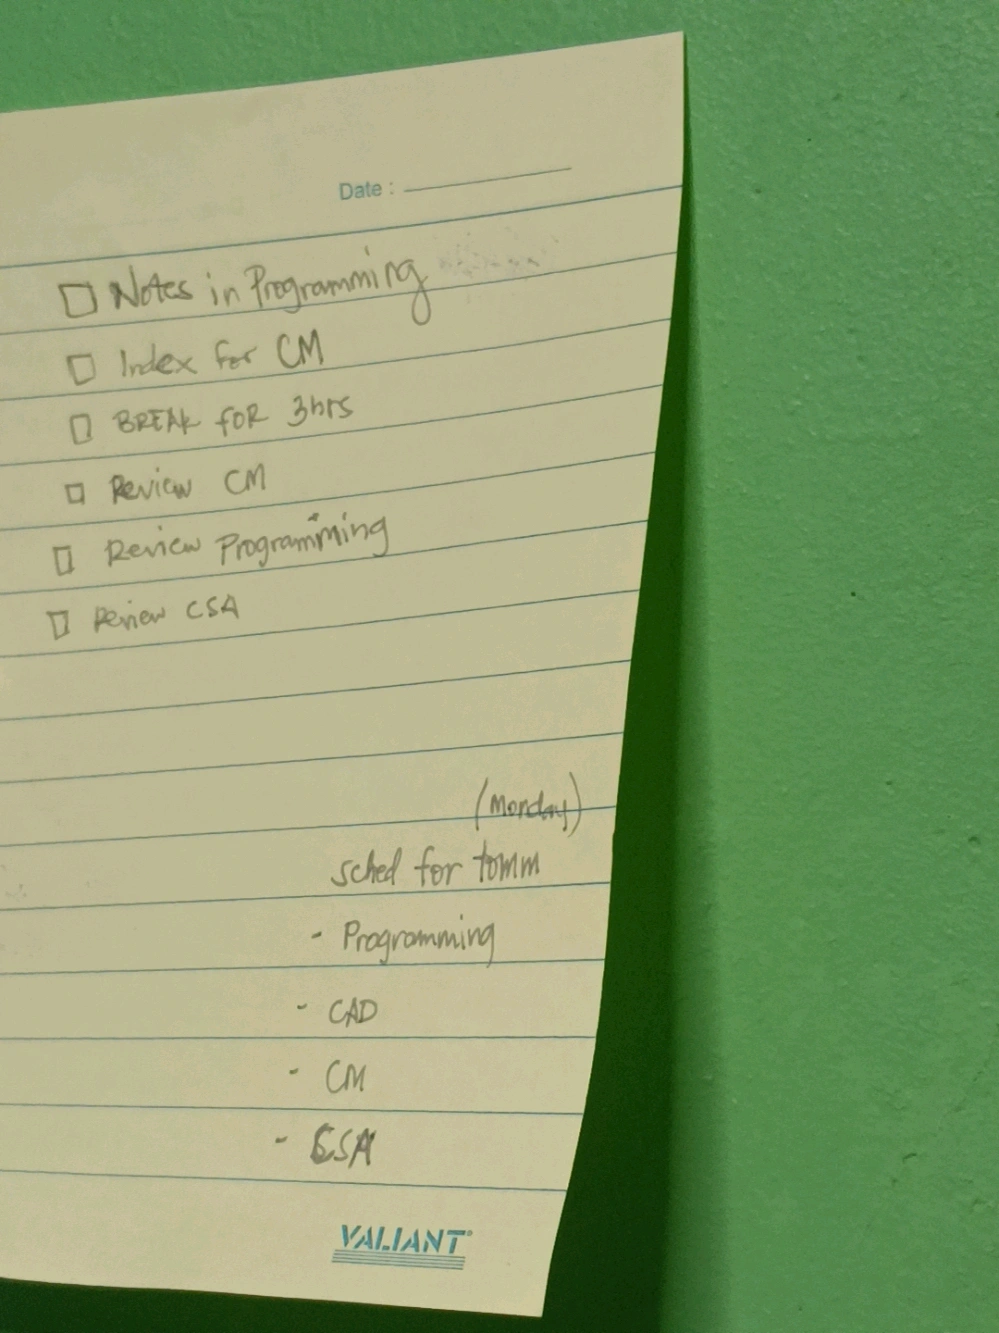 Date :
Notes in Programming
Index for CM
BREAK FOR 3hrs
Review CM
Review Programming
Review CSA
(Monday)
sched for tomm
- Programming
- CAD
- CM
- CSA
VALIANT